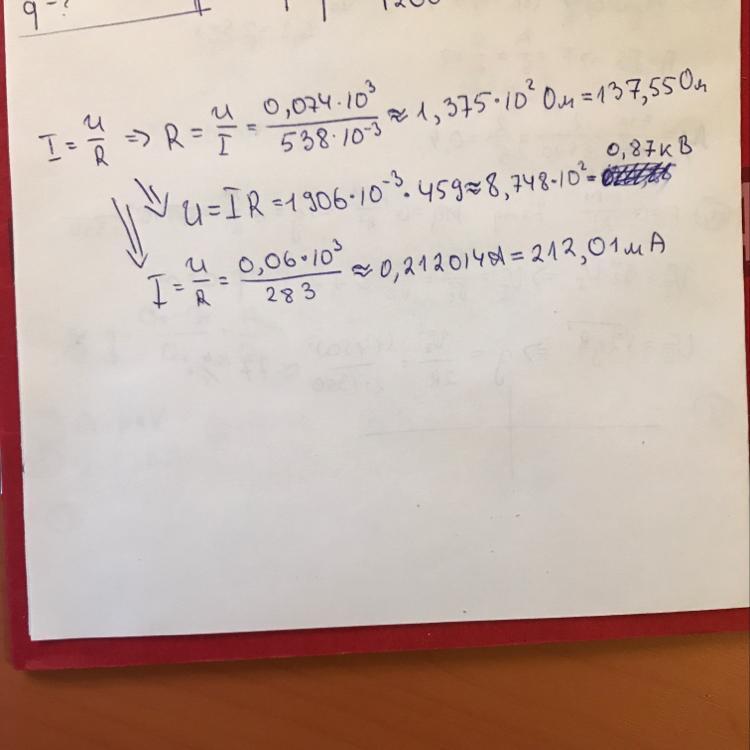 g - ?
I = U/R => R = U/I = 0,074·10³/538·10⁻³ ≈ 1,375·10² Ом = 137,55 Ом
U = I R = 1906·10⁻³ · 459 ≈ 8,748·10² = 0,87 кВ
I = U/R = 0,06·10³/283 ≈ 0,212014 А = 212,01 мА